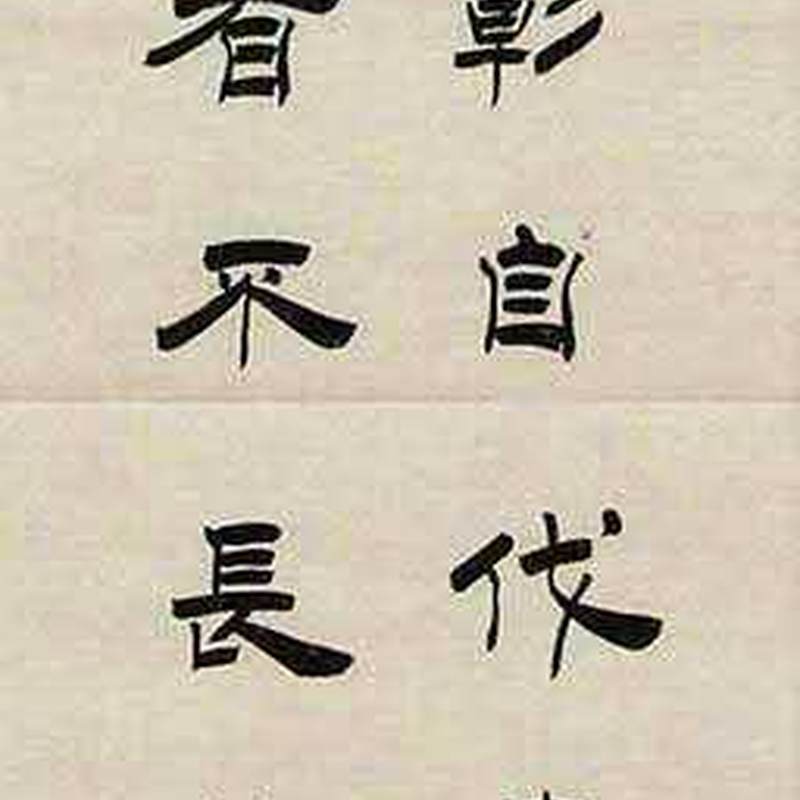 彰自伐
者不長